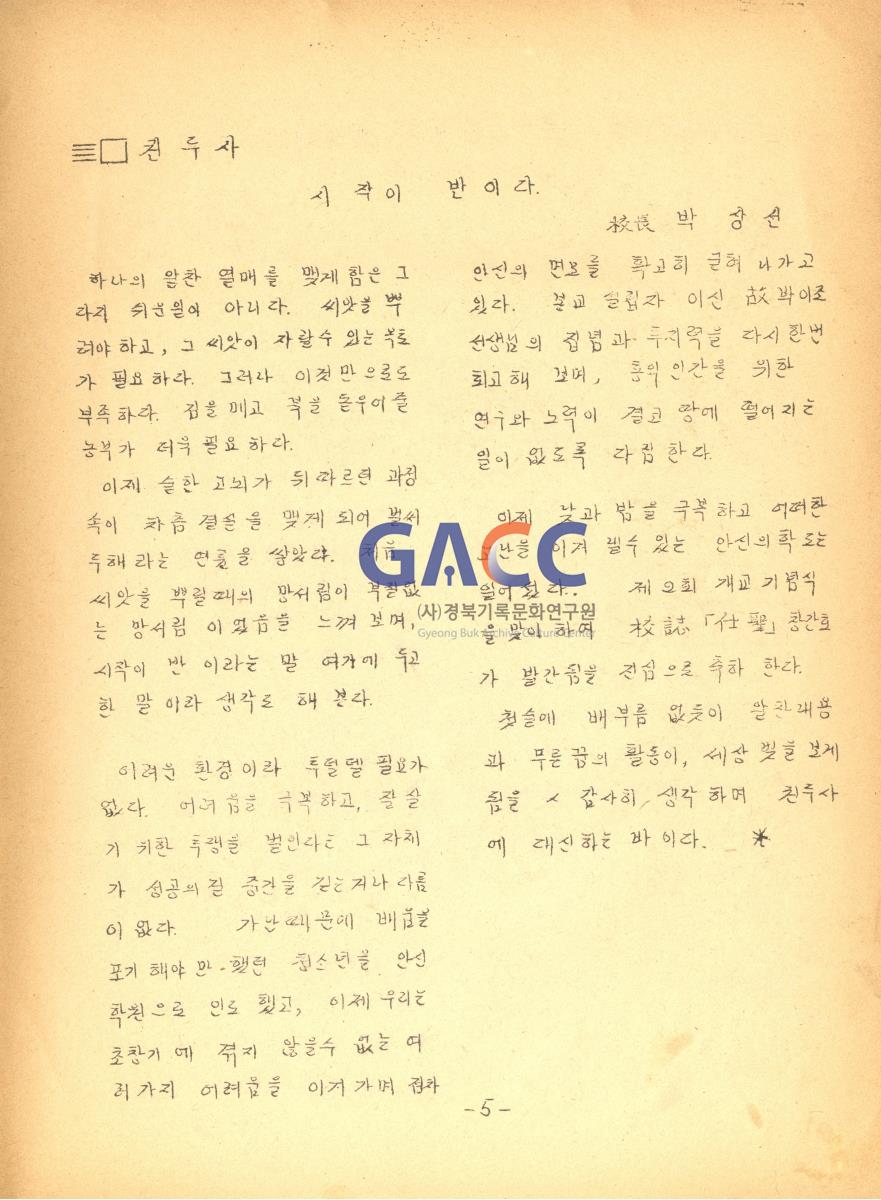 권두사
시작이 반이다.
校長 박상선
하나의 알찬 열매를 맺게함은 그
다지 쉬운일이 아니다. 씨앗을 뿌
려야하고, 그 씨앗이 자랄수 있는 옥토
가 필요하다. 그러나 이것만으로도
부족하다. 김을 메고 북을 돋우어줄
농부가 더욱 필요하다.
이제 숱한 고뇌가 뒤따르던 과정
속이 차츰 결실을 맺게 되어 벌써
두해라는 연륜을 쌓았다. 처음
씨앗을 뿌릴때의 망서림이 부질없
는 망서림 이었음을 느껴 보며,
시작이 반 이라는 말 여기에 두고
한 말이라 생각도 해 본다.
어려운 환경이라 투덜델 필요가
없다. 어려움을 극복하고, 잘 살
기 위한 투쟁을 벌인다는 그 자체
가 성공의 길 중간을 걷는거나 다름
이 없다. 가난때문에 배움을
포기해야만 했던 청소년을 안신
학원으로 인도 했고, 이제 우리는
초창기에 겪지 않을수 없는 여
러가지 어려움을 이겨가며 점차
안신의 면모를 확고히 굳혀 나가고
있다. 본교 설립자 이신 故 박이조
선생님의 집념과 투지력을 다시한번
회고해 보며, 홍익인간을 위한
연구와 노력이 결코 땅에 떨어지는
일이 없도록 다짐한다.
이제 낮과 밤을 극복하고 어떠한
고난을 이겨 낼수 있는 안신의학도는
일어섰다. 제2회 개교기념식
을 맞이하여 校誌「仕聖」창간호
가 발간됨을 진심으로 축하 한다.
첫술에 배부름 없듯이 알찬내용
과 푸른꿈의 활동이, 세상 빛을 보게
됨을 감사히 생각하며 권두사
에 대신하는 바이다. *
-5-
GACC
(사)경북기록문화연구원
Gyeong Buk Archive Culture Center